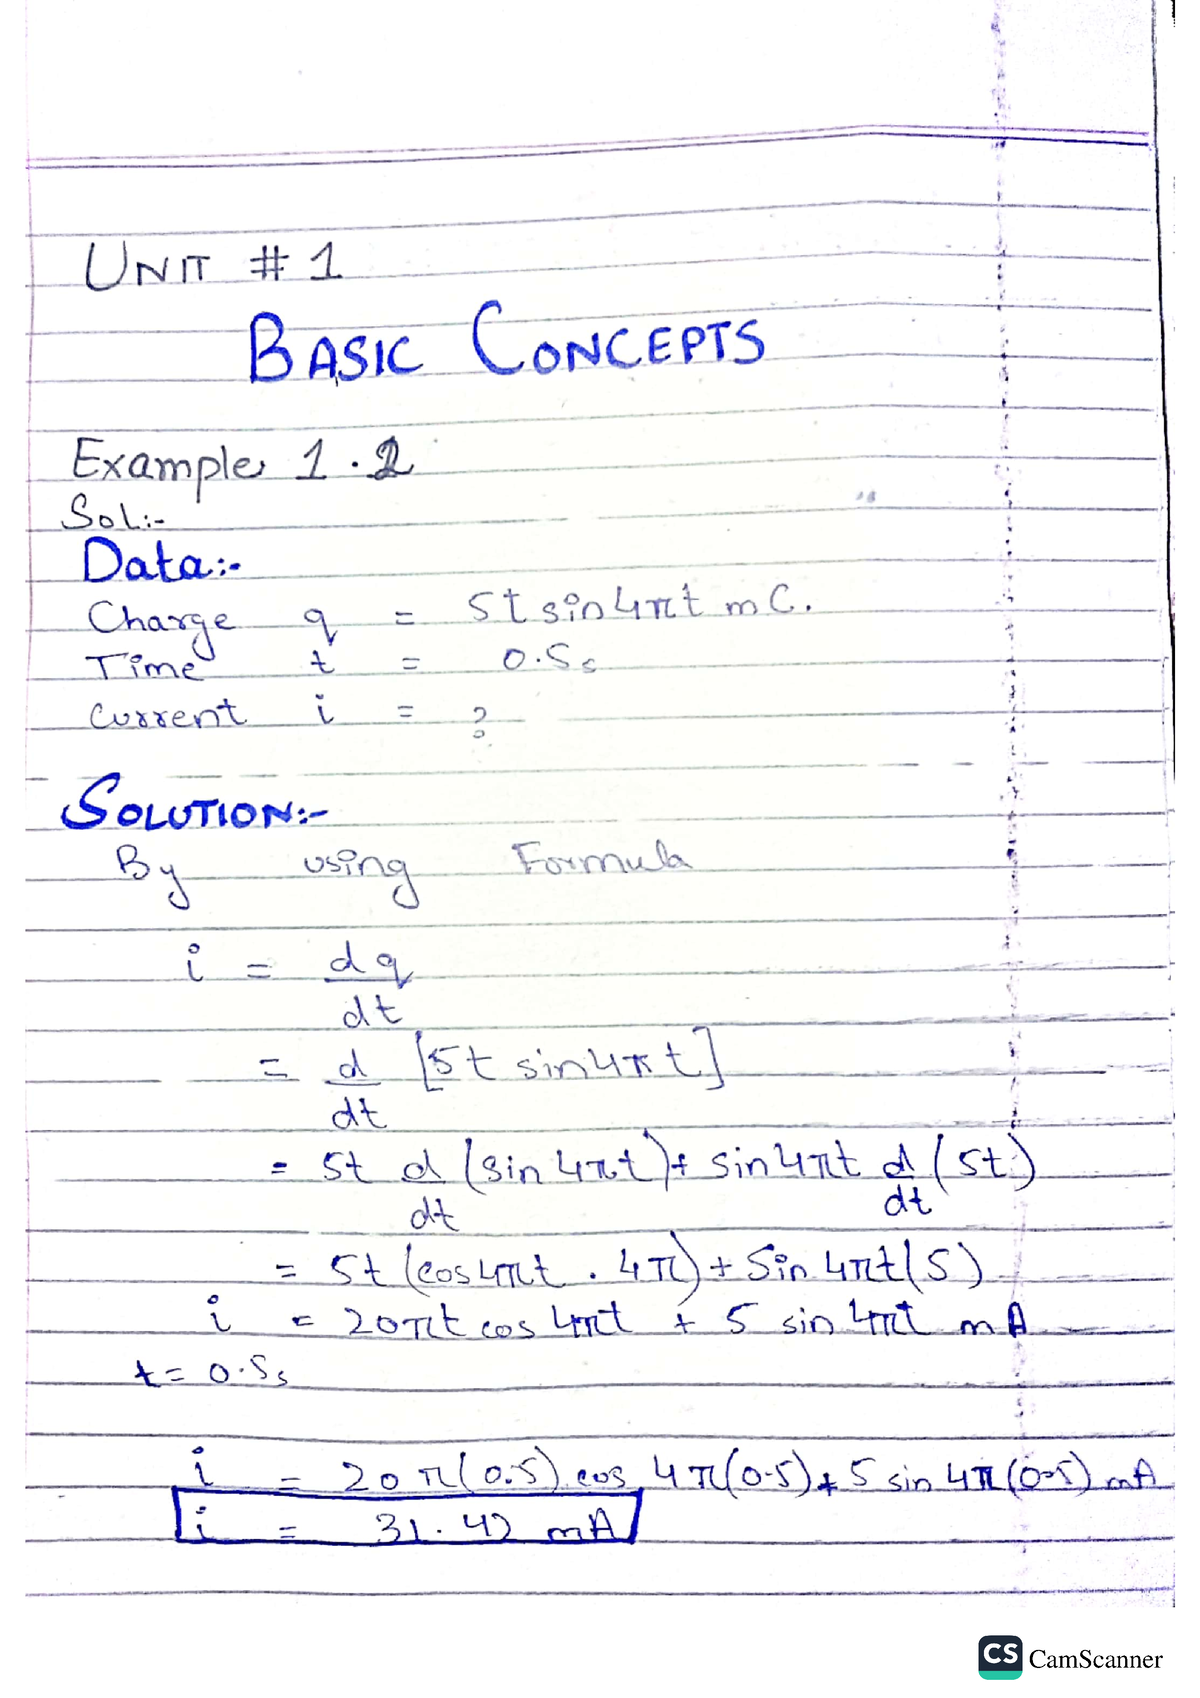 UNIT # 1
BASIC CONCEPTS
Example 1.2
Sol:-
Data:-
Charge q = 5t sin4πt mC.
Time t = 0.5s
Current i = ?
SOLUTION:-
By using Formula
i = dq
dt
= d [5t sin4πt]
dt
= 5t d (sin 4πt) + sin4πt d (5t)
dt dt
= 5t (cos4πt . 4π) + Sin 4πt(5)
i = 20πt cos 4πt + 5 sin 4πt mA
t = 0.5s
i = 20π(0.5) cos 4π(0.5) + 5 sin 4π(0.5) mA
i = 31.42 mA
CS CamScanner